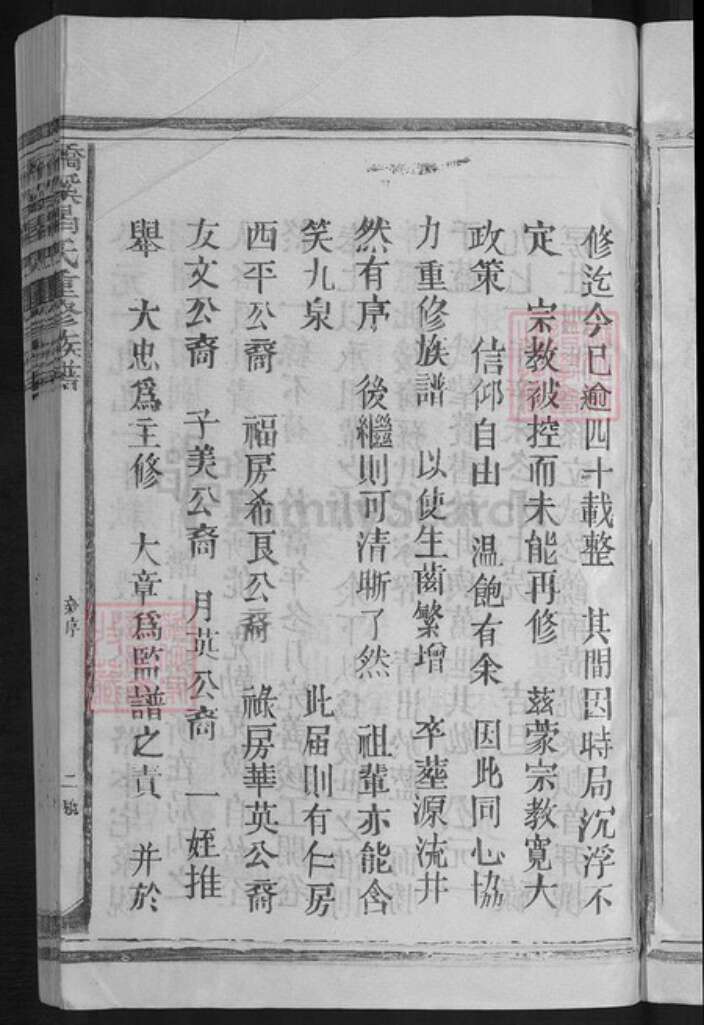 修迄今已逾四十載整　其間因時局沉浮不
定　宗教被控而未能再修　兹蒙宗教寬大
政策　信仰自由　温飽有余　因此同心協
力重修族譜　以使生齒繁增　卒塟源流井
然有序　後繼則可清晰了然　祖輩亦能含
笑九泉　此届則有仁房
西平公裔　福房希良公裔　祿房華英公裔
友文公裔　子美公裔　月英公裔　一姪推
舉　大忠爲主修　大章爲監譜之責　并於
氏重修族譜
序
二
FamilySearch